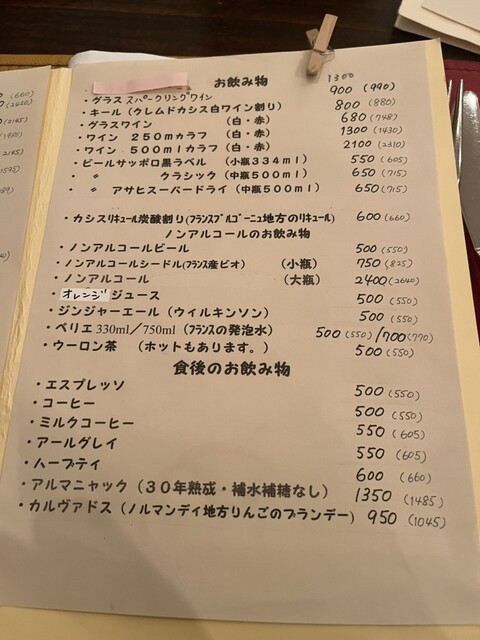 お飲み物
1300
・グラス スパークリングワイン 900 (990)
・キール（クレムドカシス白ワイン割り） 800 (880)
・グラスワイン （白・赤） 680 (748)
・ワイン 250mカラフ （白・赤） 1300 (1430)
・ワイン 500mlカラフ（白・赤） 2100 (2310)
・ビールサッポロ黒ラベル （小瓶334ml） 550 (605)
・ 〃 クラシック（中瓶500ml） 650 (715)
・ 〃 アサヒスーパードライ（中瓶500ml） 650 (715)
・カシスリキュール炭酸割り(フランスブルゴーニュ地方のリキュール) 600 (660)
ノンアルコールのお飲み物
・ノンアルコールビール 500 (550)
・ノンアルコールシードル(フランス産ビオ) （小瓶） 750 (825)
・ノンアルコール （大瓶） 2400 (2640)
・オレンジジュース 500 (550)
・ジンジャーエール（ウィルキンソン） 500 (550)
・ペリエ330ml／750ml（フランスの発泡水） 500 (550) /700 (770)
・ウーロン茶 （ホットもあります。） 500 (550)
食後のお飲み物
・エスプレッソ 500 (550)
・コーヒー 500 (550)
・ミルクコーヒー 550 (605)
・アールグレイ 550 (605)
・ハーブティ 600 (660)
・アルマニャック（３０年熟成・補水補糖なし） 1350 (1485)
・カルヴァドス（ノルマンディ地方りんごのブランデー） 950 (1045)